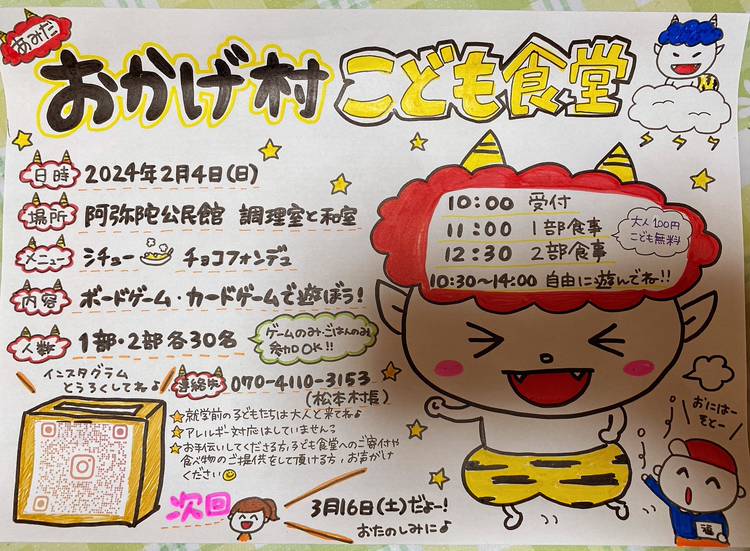 あみだ
おかげ村 こども食堂
日時 2024年2月4日(日)
場所 阿弥陀公民館 調理室と和室
メニュー シチュー チョコフォンデュ
内容 ボードゲーム・カードゲームで遊ぼう!
人数 1部・2部 各30名
ゲームのみ・ごはんのみ
参加OK!!
10:00 受付
11:00 1部食事
12:30 2部食事
10:30~14:00 自由に遊んでね!!
大人100円
こども無料
インスタグラム
とうろくしてね♪
連絡先 070-4110-3153
(松本村長)
★就学前の子どもたちは大人と来てね♪
★アレルギー対応はしていません
★お手伝いしてくださる方、子ども食堂へのご寄付や
食べ物のご提供をして頂ける方、お声がけ
ください
次回
3月16日(土)だよー!
おたのしみに♪
おにはー
そとー
福